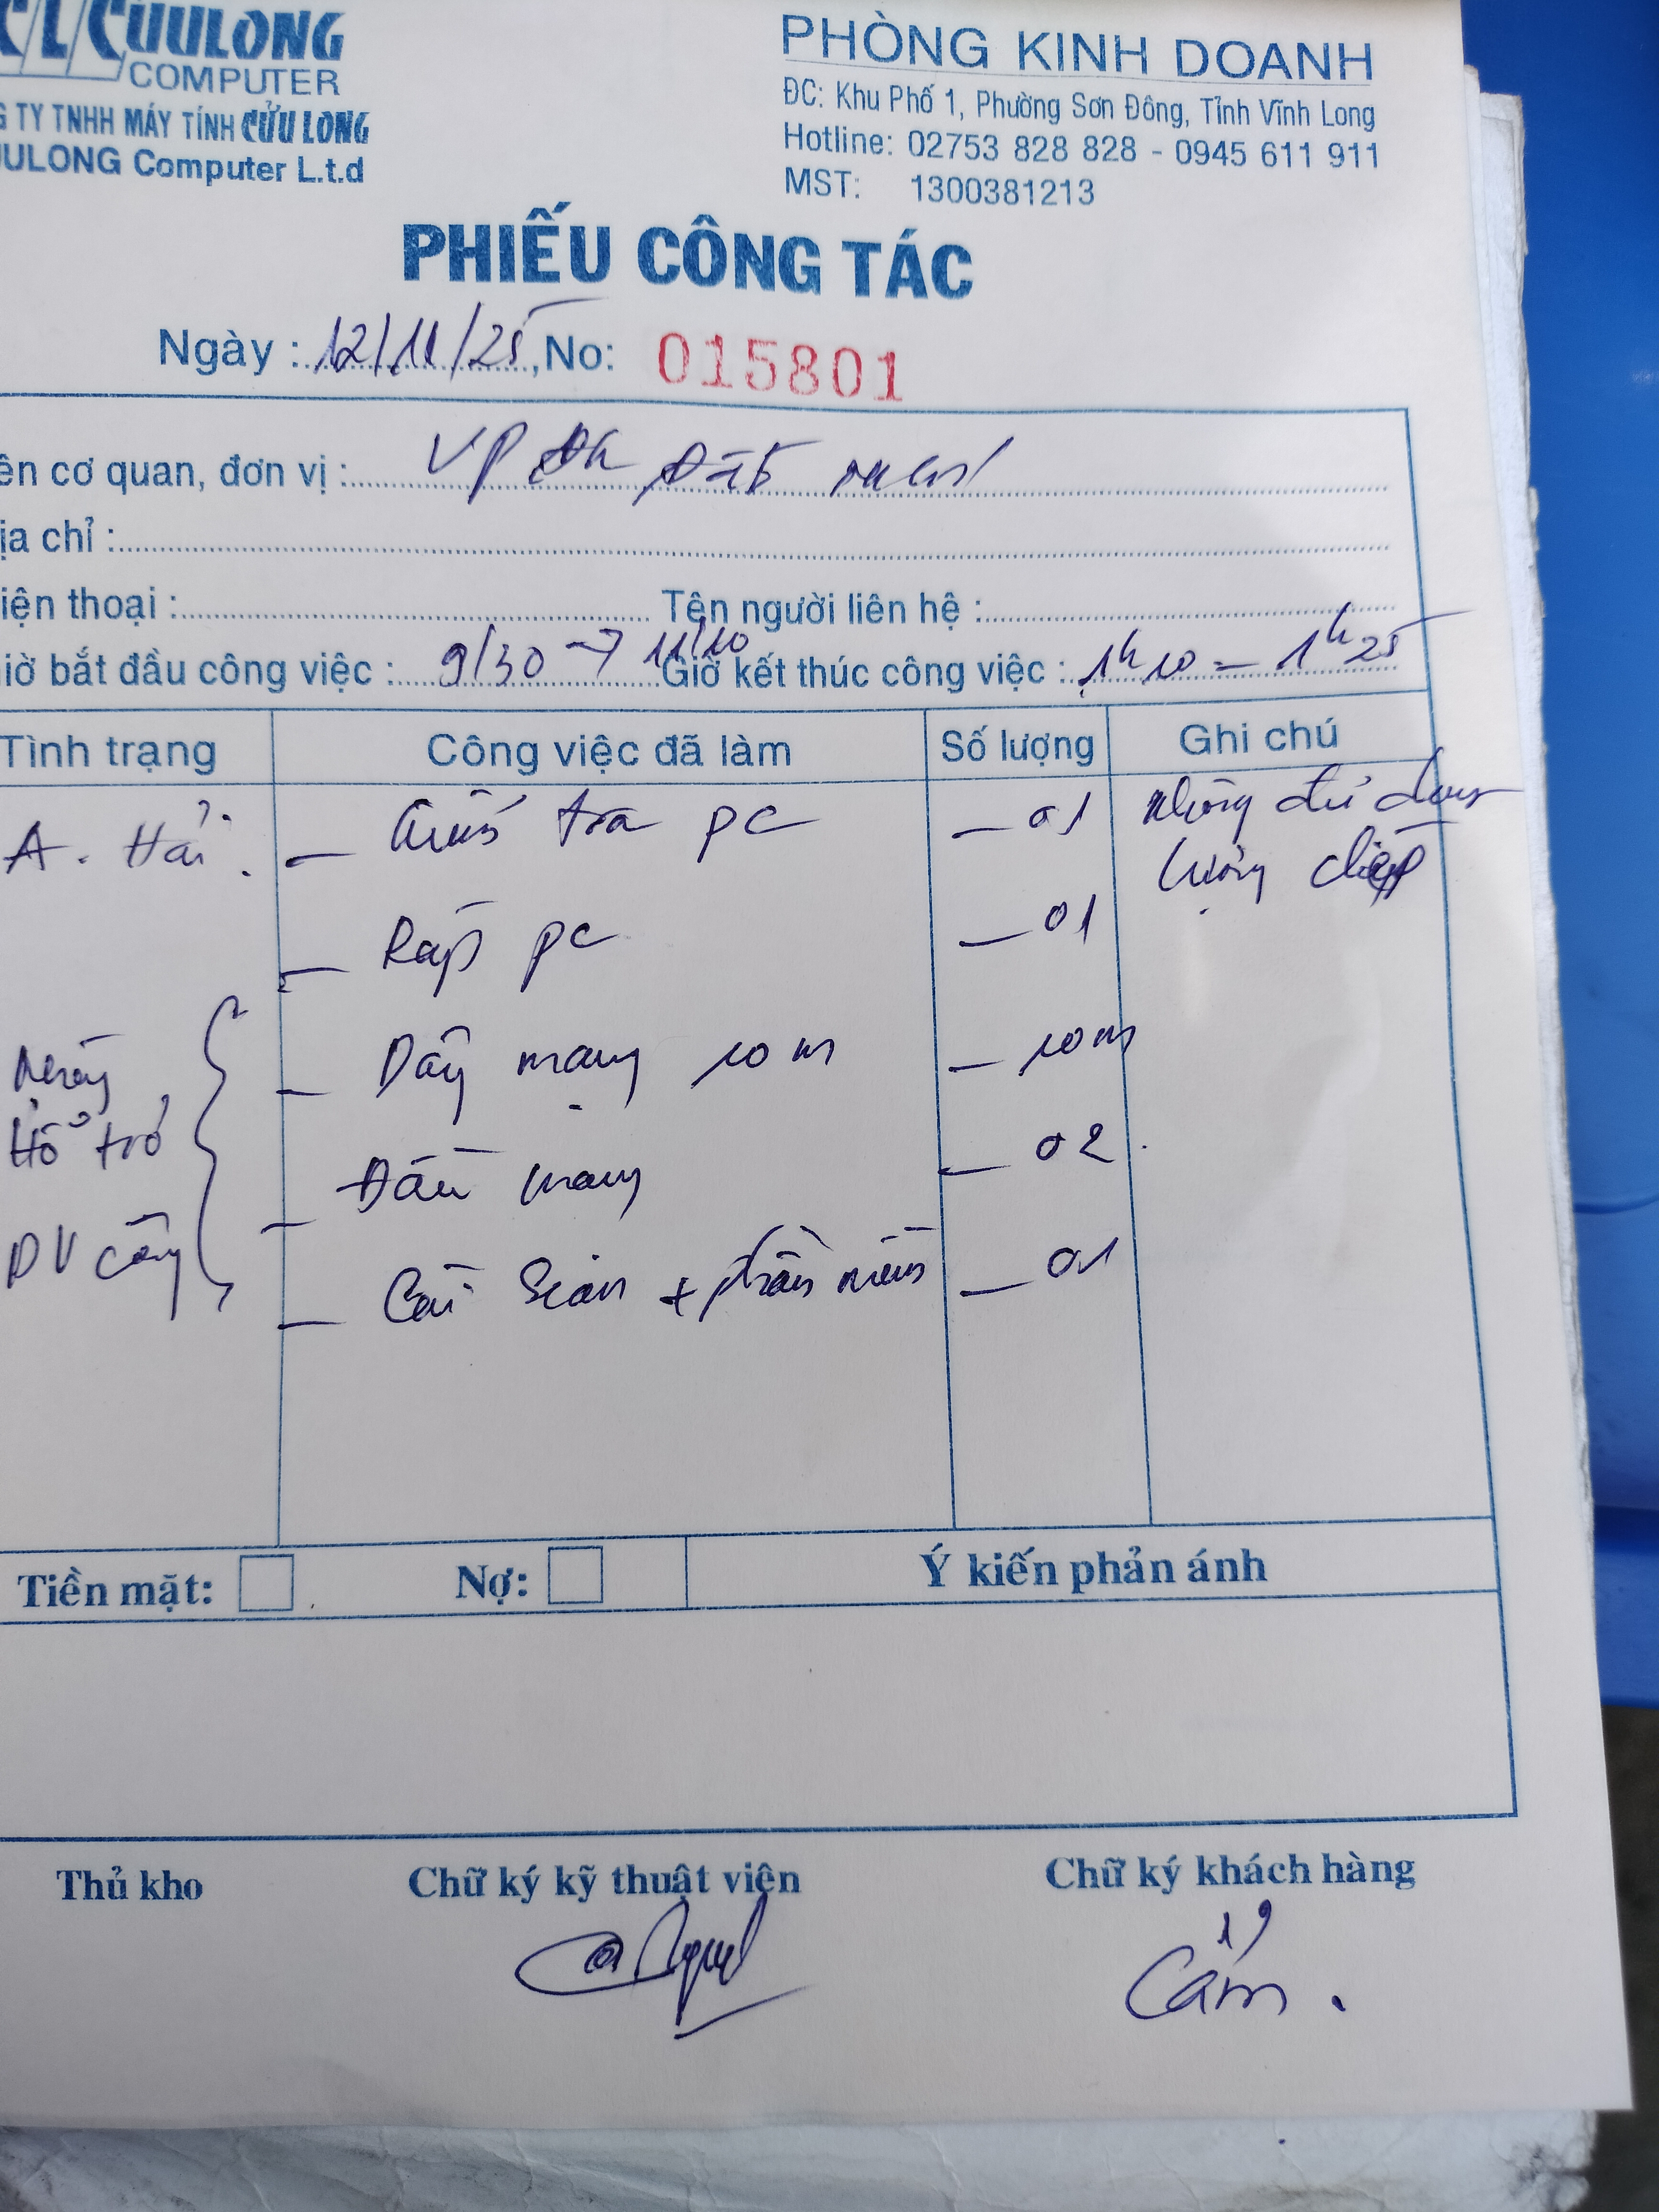 CỬU LONG
COMPUTER
G TY TNHH MÁY TÍNH CỬU LONG
UULONG Computer L.t.d
PHÒNG KINH DOANH
ĐC: Khu Phố 1, Phường Sơn Đông, Tỉnh Vĩnh Long
Hotline: 02753 828 828 - 0945 611 911
MST: 1300381213
PHIẾU CÔNG TÁC
Ngày : 12/11/25, No: 015801
ên cơ quan, đơn vị : VP ĐK Đất
ịa chỉ :
iện thoại : Tên người liên hệ :
iờ bắt đầu công việc : 9/30 → 11/10 Giờ kết thúc công việc : 1h10 - 1h25
Tình trạng Công việc đã làm Số lượng Ghi chú
A. Hải. - Kiểm tra pc - 01 không đủ dung
lượng
- Ráp pc - 01
- Dây mạng 10m - 10m
Hỗ trợ
- Đầu mạng - 02
DV công
- Cài Scan + phần mềm - 01
Tiền mặt: Nợ: Ý kiến phản ánh
Thủ kho Chữ ký kỹ thuật viên Chữ ký khách hàng
Cẩm.